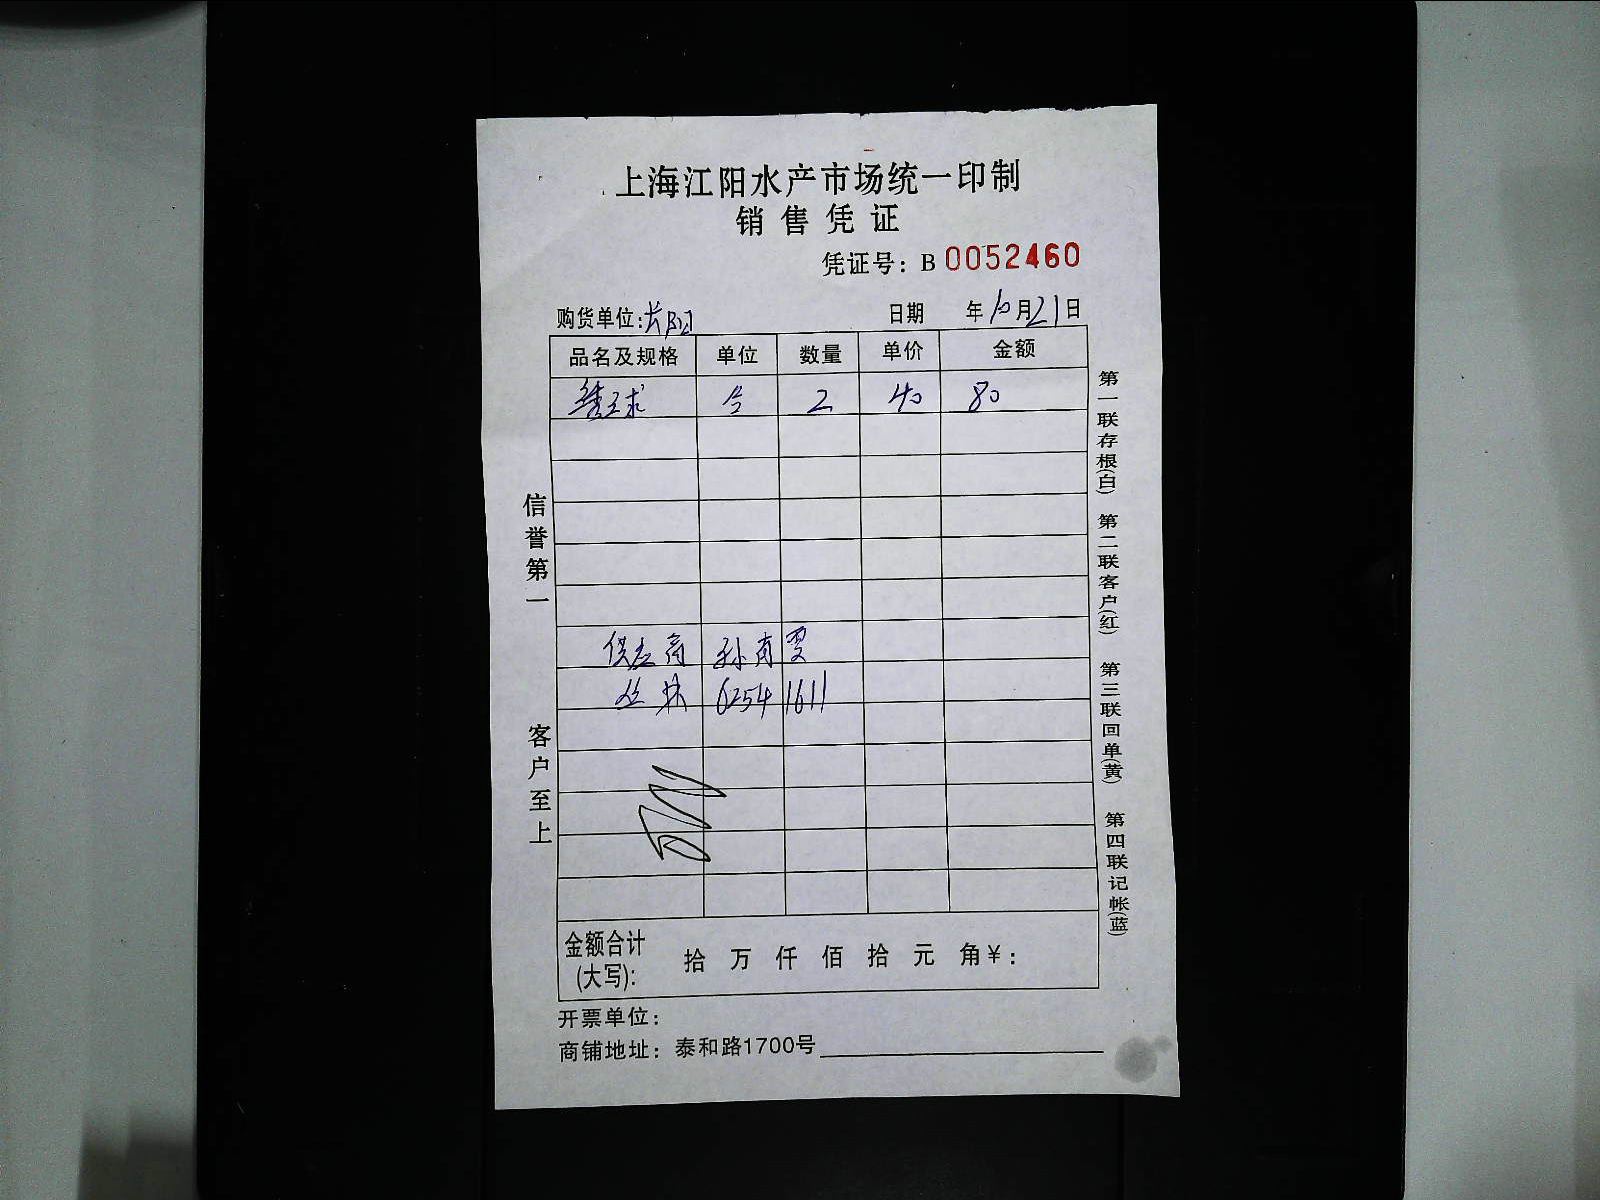 上海江阳水产市场统一印制
销售凭证
凭证号：B 0052460
购货单位：长阳 日期 年10月21日
品名及规格 单位 数量 单价 金额
绣球 个 2 40 80
供应商 孙育雯
6254 1611
金额合计(大写)： 拾 万 仟 佰 拾 元 角 ¥：
开票单位：
商铺地址：泰和路1700号
信誉第一 客户至上
第一联存根(白) 第二联客户(红) 第三联回单(黄) 第四联记帐(蓝)